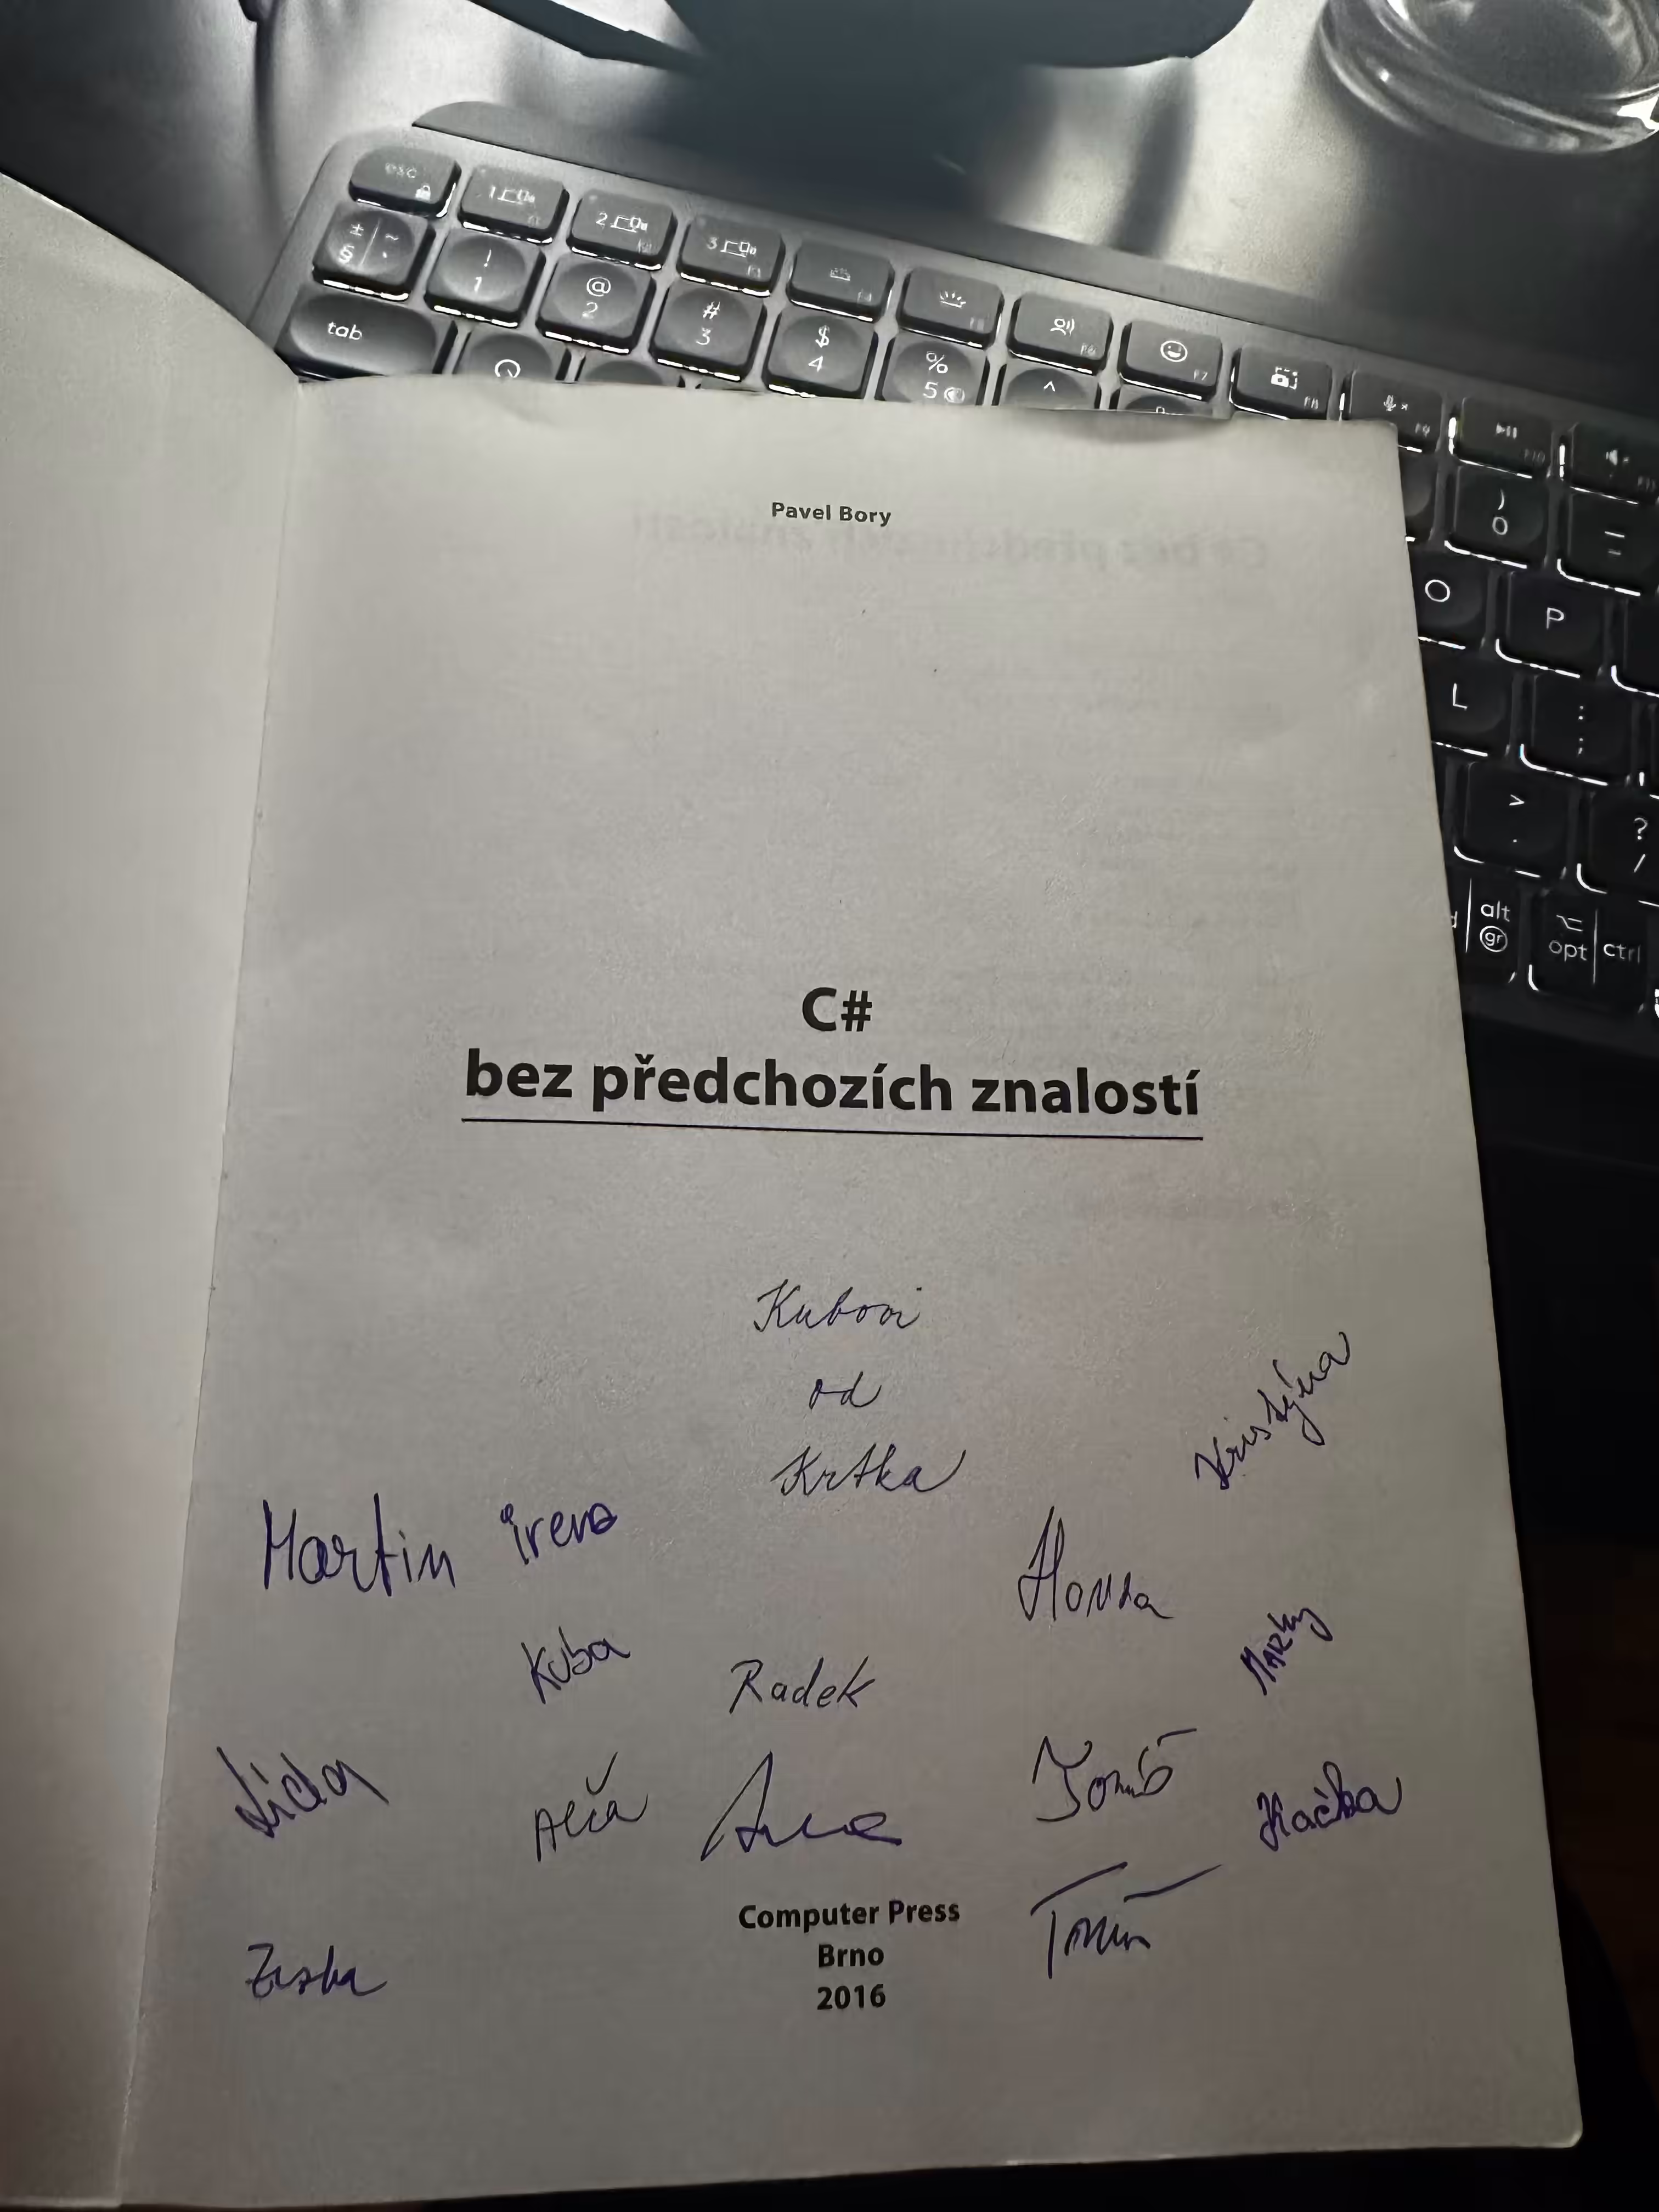 esc
1
2
3
± ~
§ `
!
1
@
2
#
3
$
4
%
5
^
F7
F8
F9
tab
)
0
=
O
P
L
:
;
>
.
?
/
alt
gr
opt
ctrl
Pavel Bory
C#
bez předchozích znalostí
Kubovi
od
Krtka
Kristýna
Martin
irena
Honza
Kuba
Radek
Marky
Lída
Alča
Tomáš
Kačka
Computer Press
Brno
2016